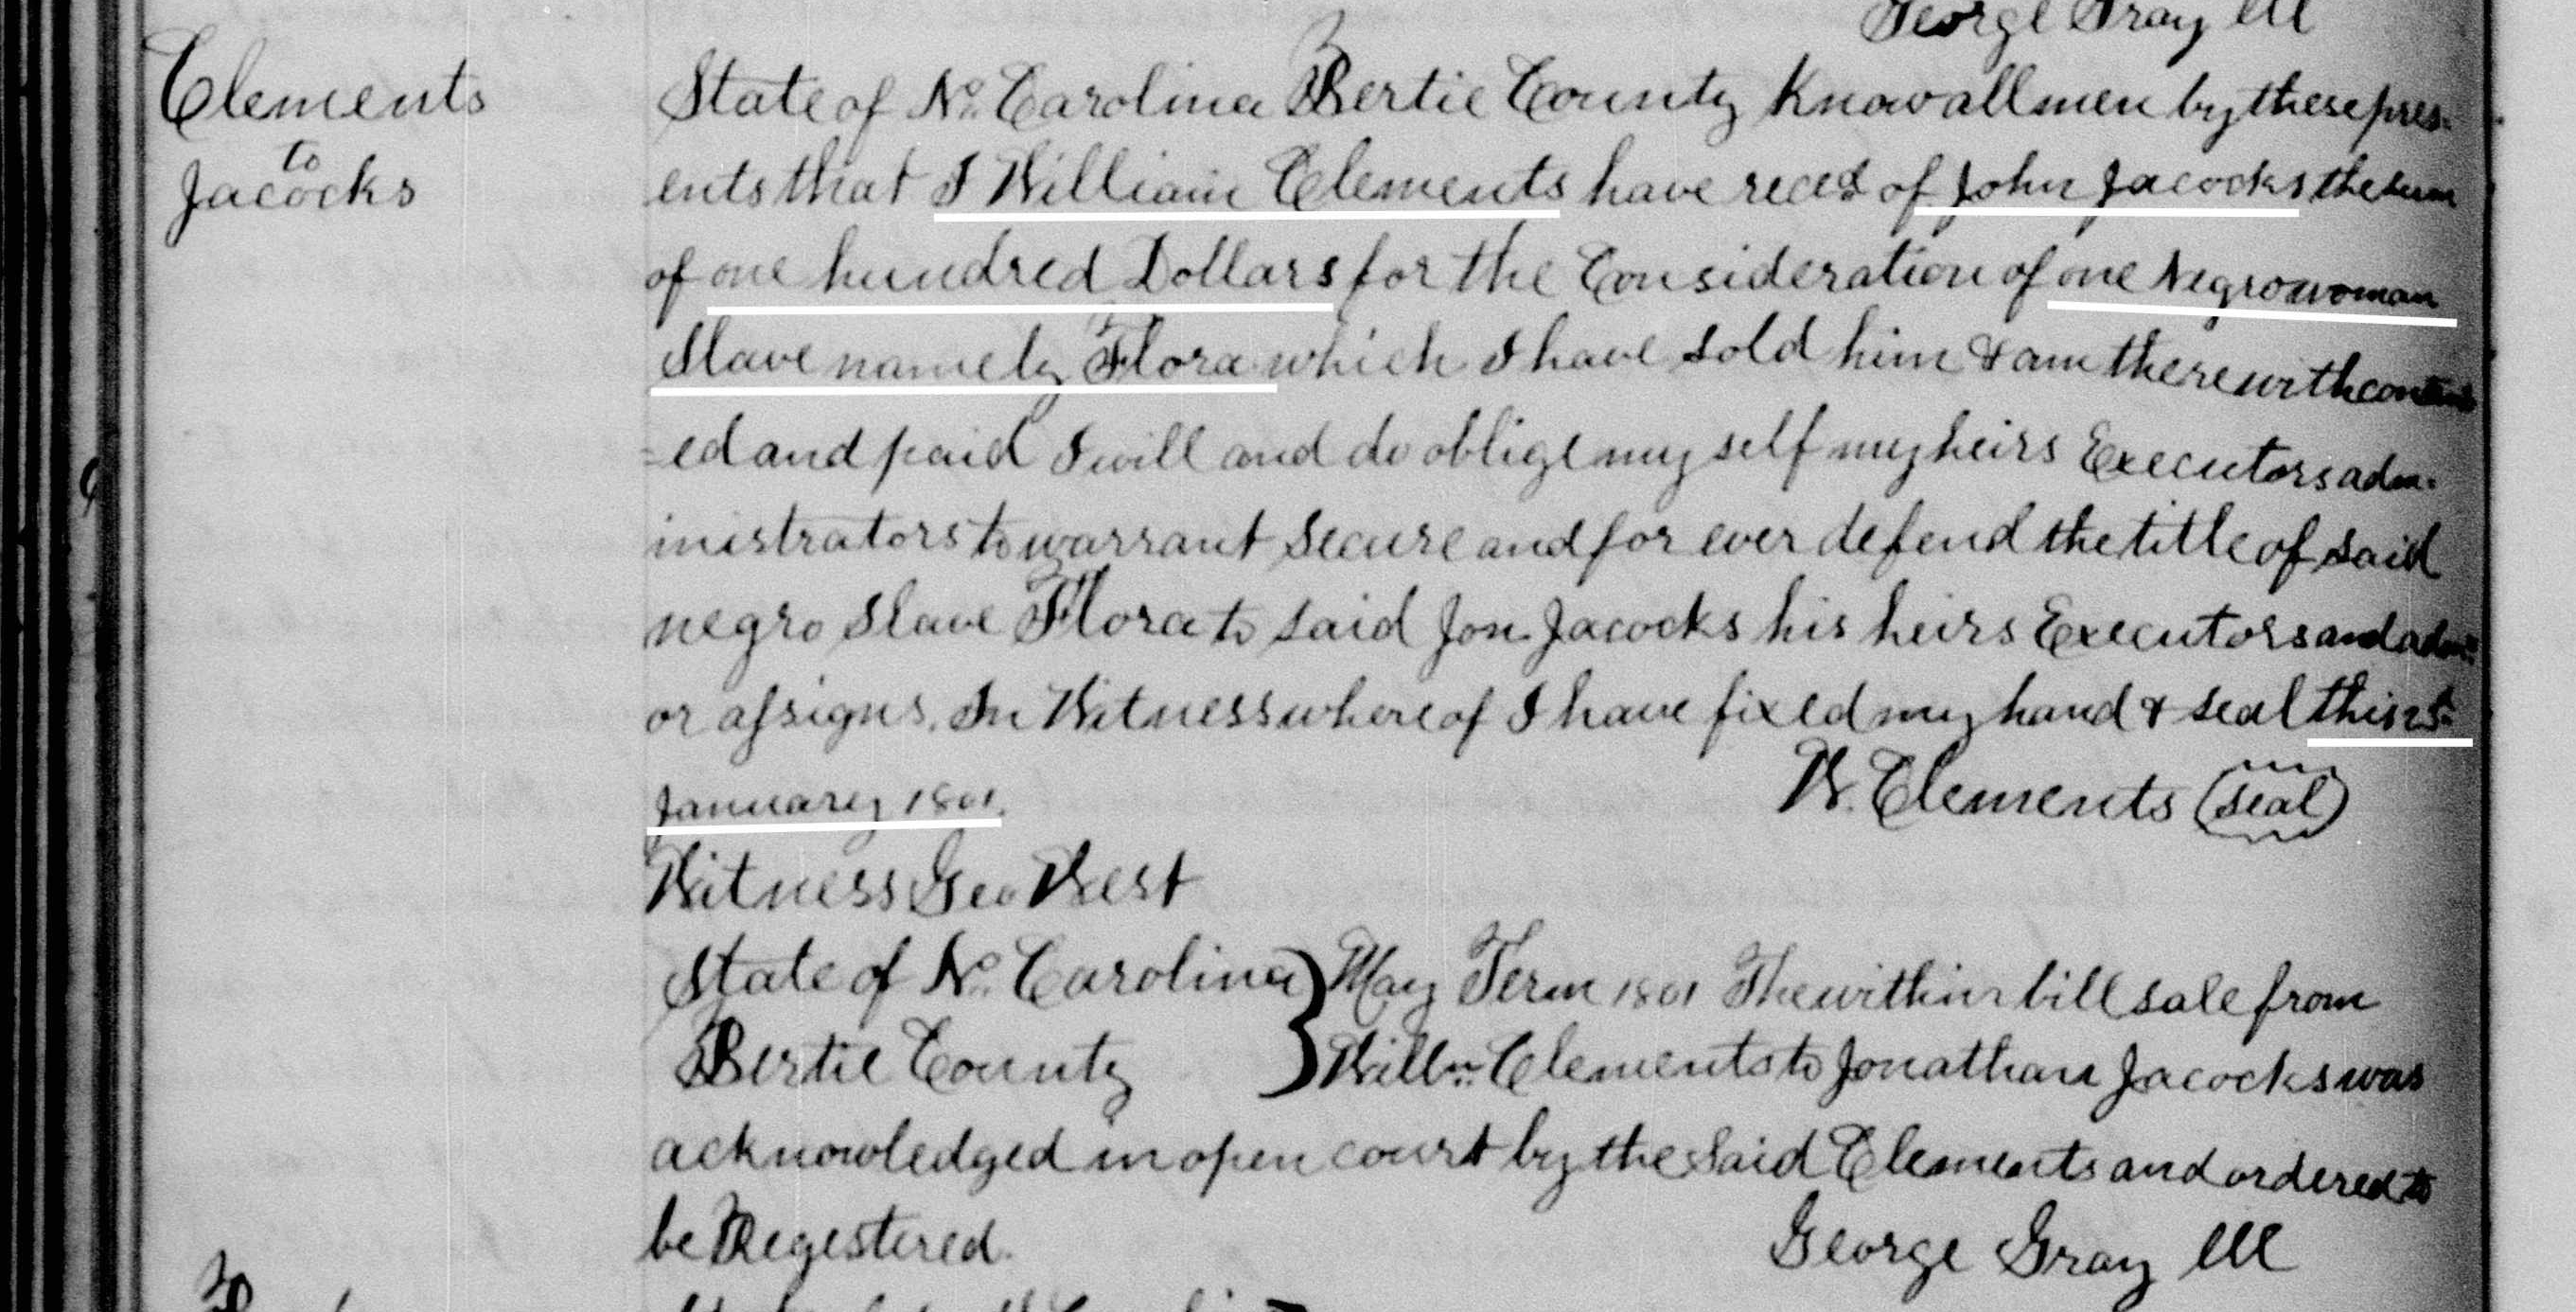 George Gray CCC
Clements
to
Jacocks
State of No. Carolina Bertie County Know all men by these pres-
ents that I William Clements have recd of John Jacocks the sum
of one hundred Dollars for the Consideration of one Negro woman
Slave namely Flora which I have sold him & am therewith content
=ed and paid I will and do oblige my self my heirs Executors adm-
inistrators to warrant Secure and for ever defend the title of said
negro Slave Flora to said Jon. Jacocks his heirs Executors and adm:
or assigns. In Witness whereof I have fixed my hand & seal this
January 1801.
W. Clements (seal)
Witness Geo West
State of No. Carolina } May Term 1801 The within bill sale from
Bertie County } Willm. Clements to Jonathan Jacocks was
acknowledged in open court by the said Clements and ordered to
be Regestered.
George Gray CCC